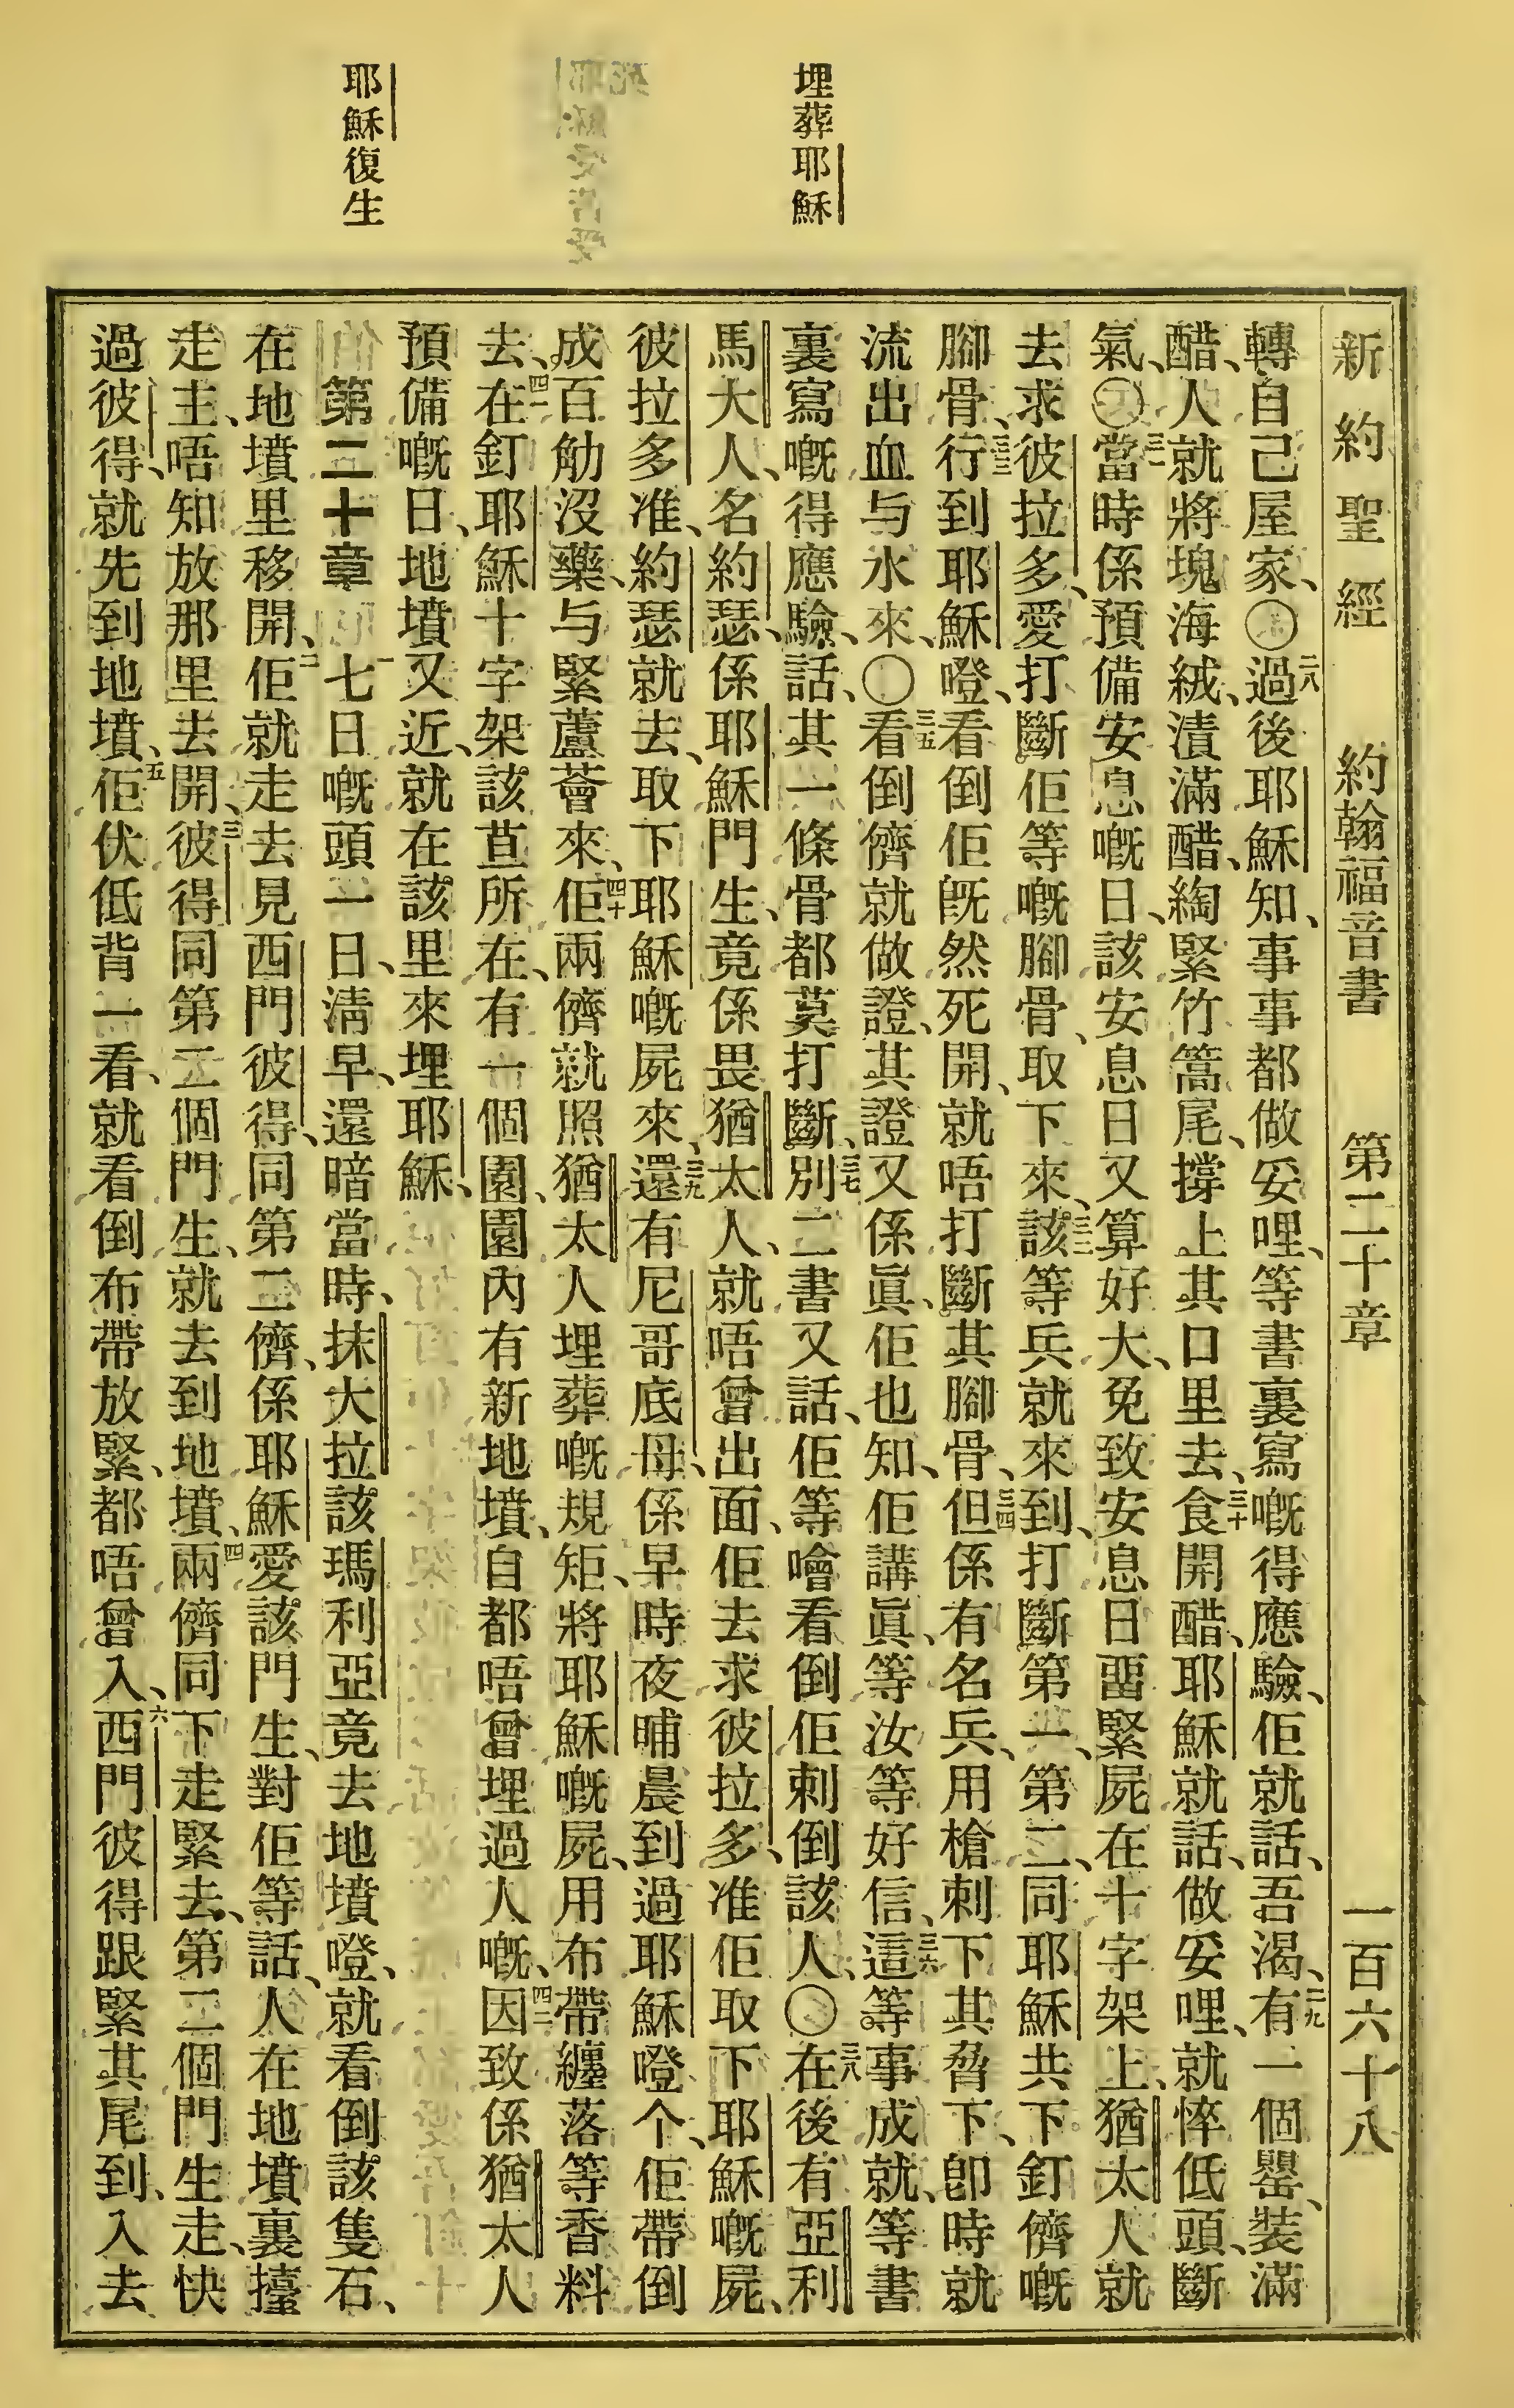 埋葬耶穌
耶穌復生
新約聖經 約翰福音書 第二十章 一百六十八
轉自己屋家、〇二八過後耶穌知、事事都做妥哩、等書裏寫嘅得應驗、佢就話、吾渴、二九有一個罌、裝滿
醋、人就將塊海絨、漬滿醋、綯緊竹篙尾、撐上其口里去、三十食開醋、耶穌就話、做妥哩、就悴低頭、斷
氣、〇三一當時係預備安息嘅日、該安息日又算好大、免致安息日畱緊屍在十字架上、猶太人就
去求彼拉多、愛打斷佢等嘅腳骨、取下來、三二該等兵就來到、打斷第一、第二、同耶穌共下釘儕嘅
腳骨、三三行到耶穌嶝、看倒佢旣然死開、就唔打斷其腳骨、三四但係有名兵、用槍刺下其脅下、卽時就
流出血与水來、〇三五看倒儕就做證、其證又係眞、佢也知、佢講眞、等汝等好信、三六這等事成就、等書
裏寫嘅得應驗、話、其一條骨都莫打斷、三七別二書又話、佢等噲看倒佢刺倒該人、〇三八在後有亞利
馬大人、名約瑟、係耶穌門生、竟係畏猶太人、就唔曾出面、佢去求彼拉多、准佢取下耶穌嘅屍、
彼拉多准、約瑟就去、取下耶穌嘅屍來、三九還有尼哥底母、係早時夜晡晨到過耶穌嶝个、佢帶倒
成百觔沒藥、与緊蘆薈來、四十佢兩儕就照猶太人埋葬嘅規矩、將耶穌嘅屍、用布帶纏落等香料
去、四一在釘耶穌十字架該苴所在、有一個園、園內有新地墳、自都唔曾埋過人嘅、四二因致係猶太人
預備嘅日、地墳又近、就在該里來埋耶穌、
第二十章 一七日嘅頭一日、淸早、還暗當時、抹大拉該瑪利亞竟去地墳嶝、就看倒該隻石、
在地墳里移開、二佢就走去見西門彼得、同第二儕、係耶穌愛該門生、對佢等話、人在地墳裏擡
走主、唔知放那里去開、三彼得同第二個門生、就去到地墳、四兩儕同下走緊去、第二個門生走、快
過彼得、就先到地墳、五佢伏低背一看、就看倒布帶放緊、都唔曾入、六西門彼得跟緊其尾到、入去